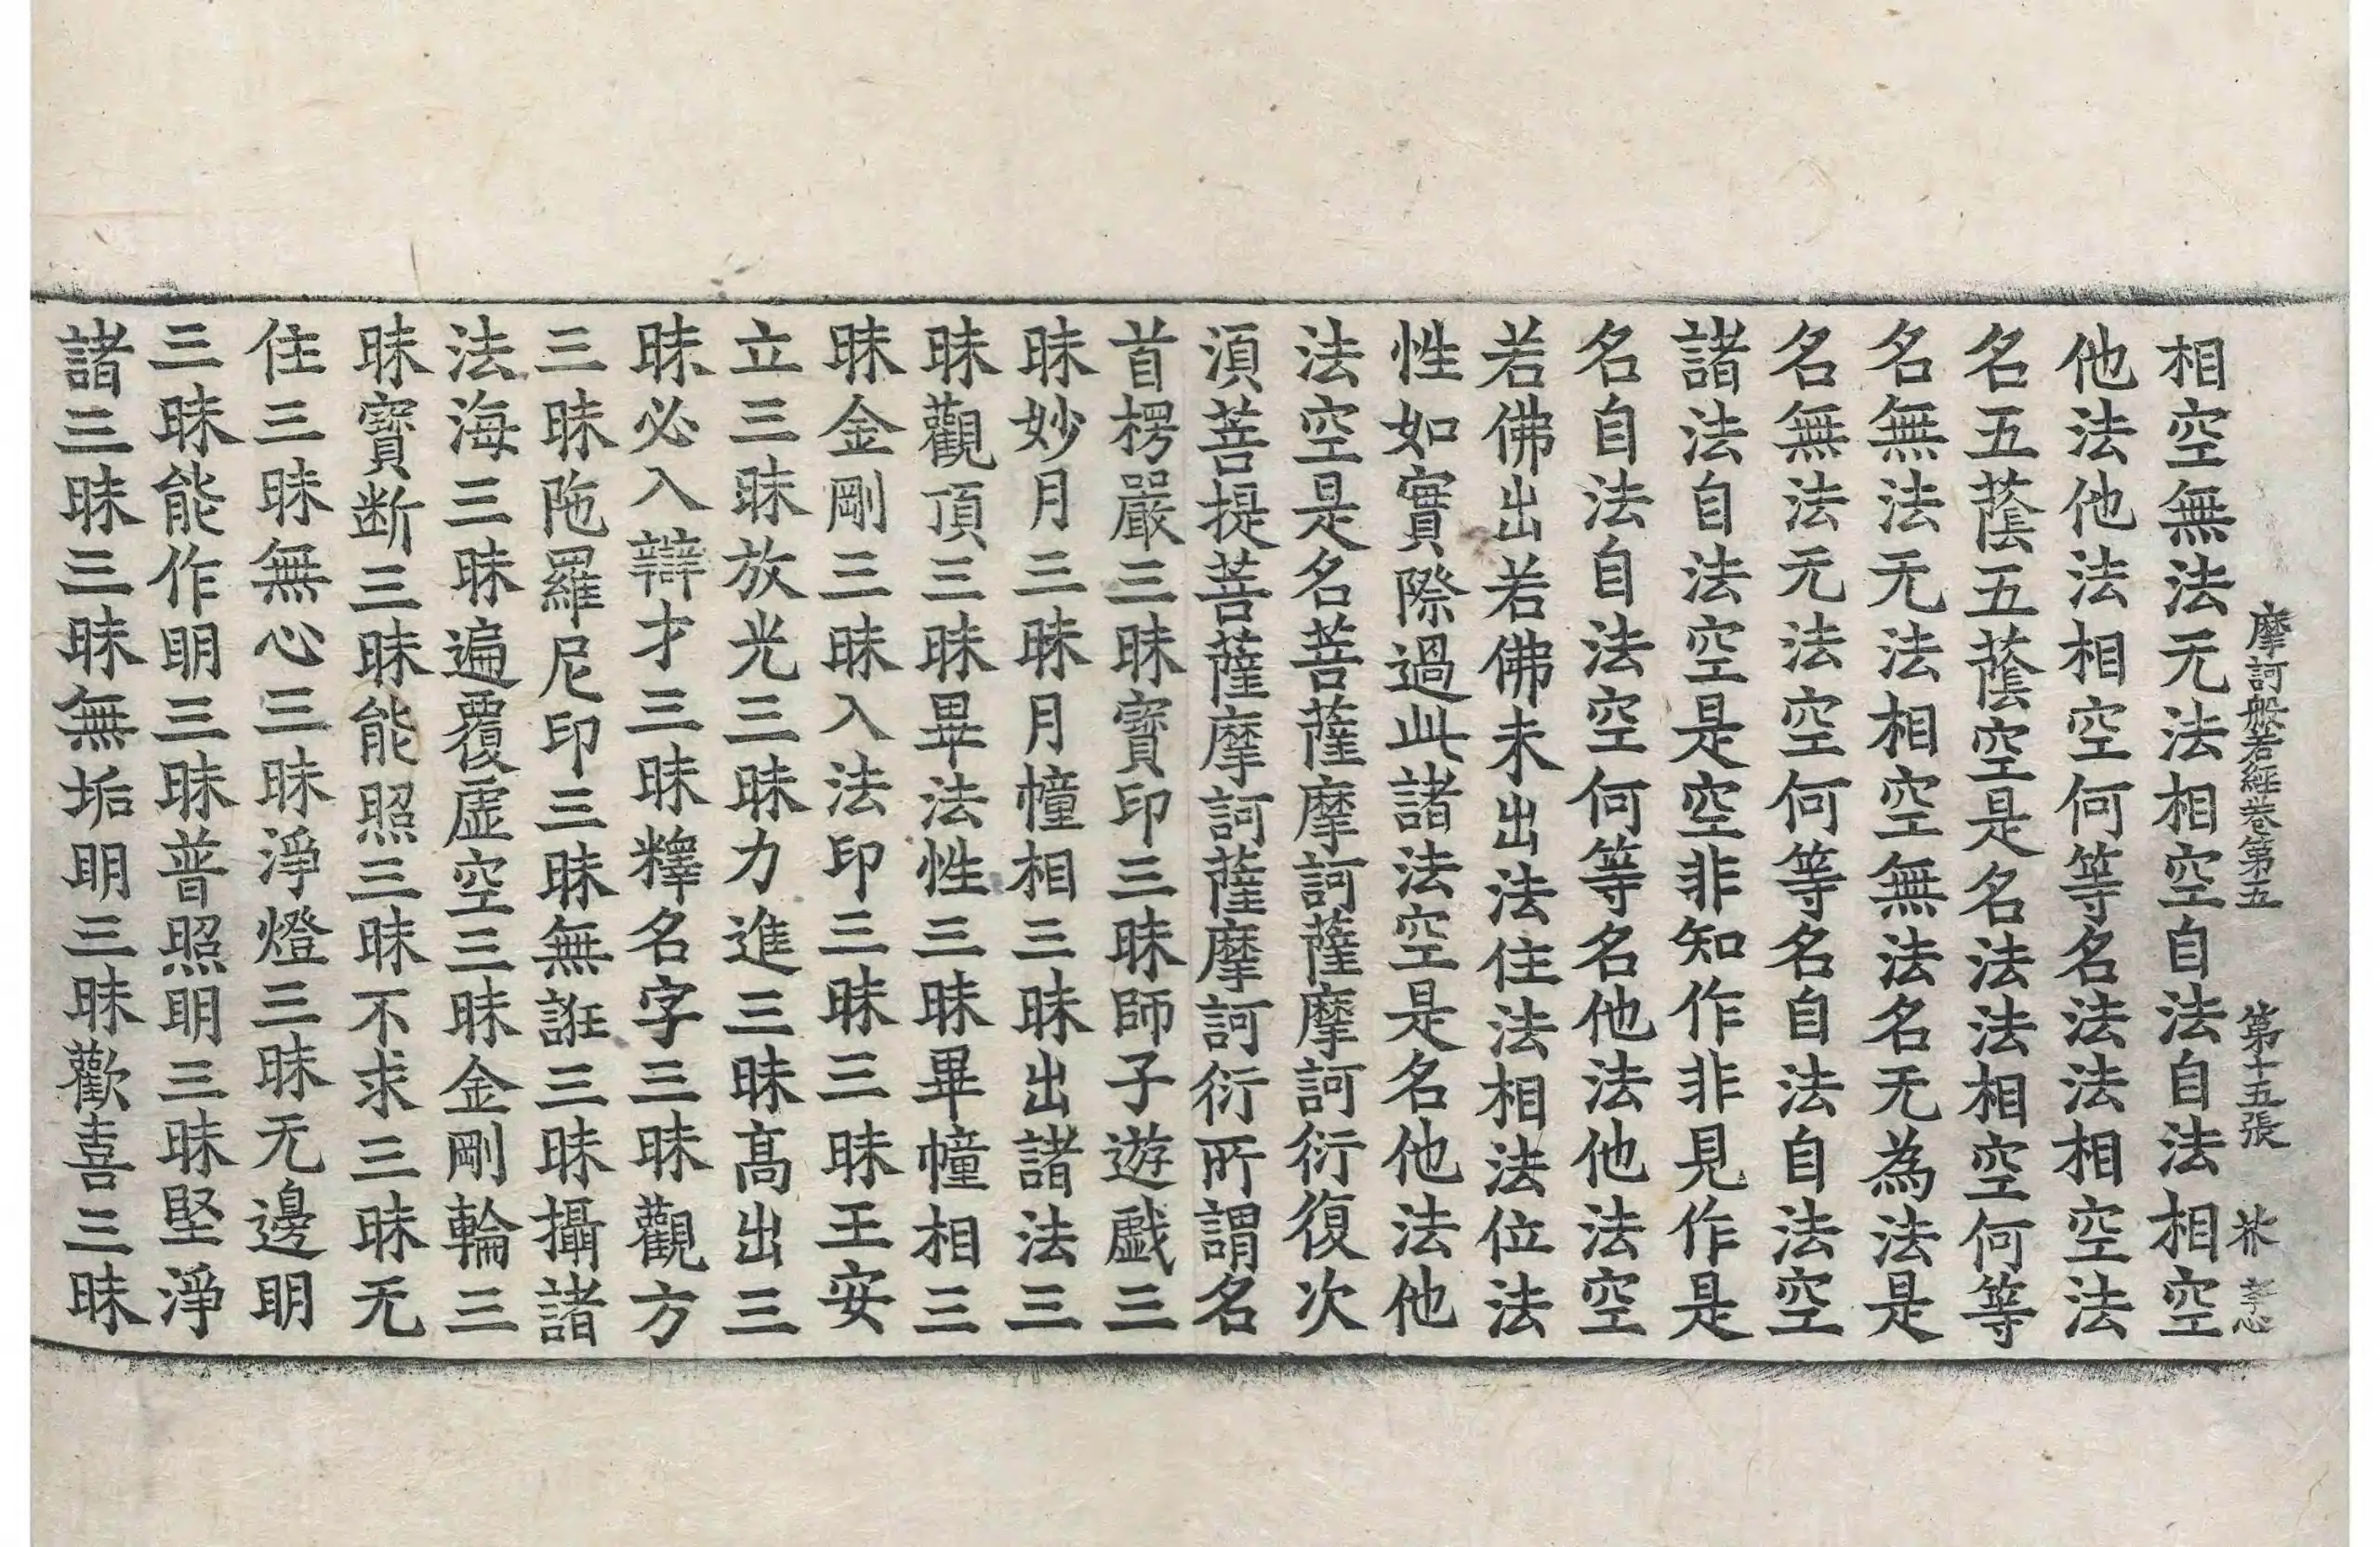 摩訶般若經卷第五　第十五張　芥
相空無法无法相空自法自法相空
他法他法相空何等名法法相空法
名五蔭五蔭空是名法法相空何等
名無法无法相空無法名无為法是
名無法无法空何等名自法自法空
諸法自法空是空非知作非見作是
名自法自法空何等名他法他法空
若佛出若佛未出法住法相法位法
性如實際過此諸法空是名他法他
法空是名菩薩摩訶薩摩訶衍復次
湏菩提菩薩摩訶薩摩訶衍所謂名
首楞嚴三昧寳印三昧師子遊戱三
昧妙月三昧月幢相三昧出諸法三
昧觀頂三昧畢法性三昧畢幢相三
昧金剛三昧入法印三昧三昧王安
立三昧放光三昧力進三昧髙出三
昧必入辯才三昧釋名字三昧觀方
三昧陁羅尼印三昧無誑三昧攝諸
法海三昧遍覆虛空三昧金剛輪三
昧寳断三昧能照三昧不求三昧无
住三昧無心三昧淨燈三昧无邊明
三昧能作明三昧普照明三昧堅淨
諸三昧三昧無垢明三昧歡喜三昧